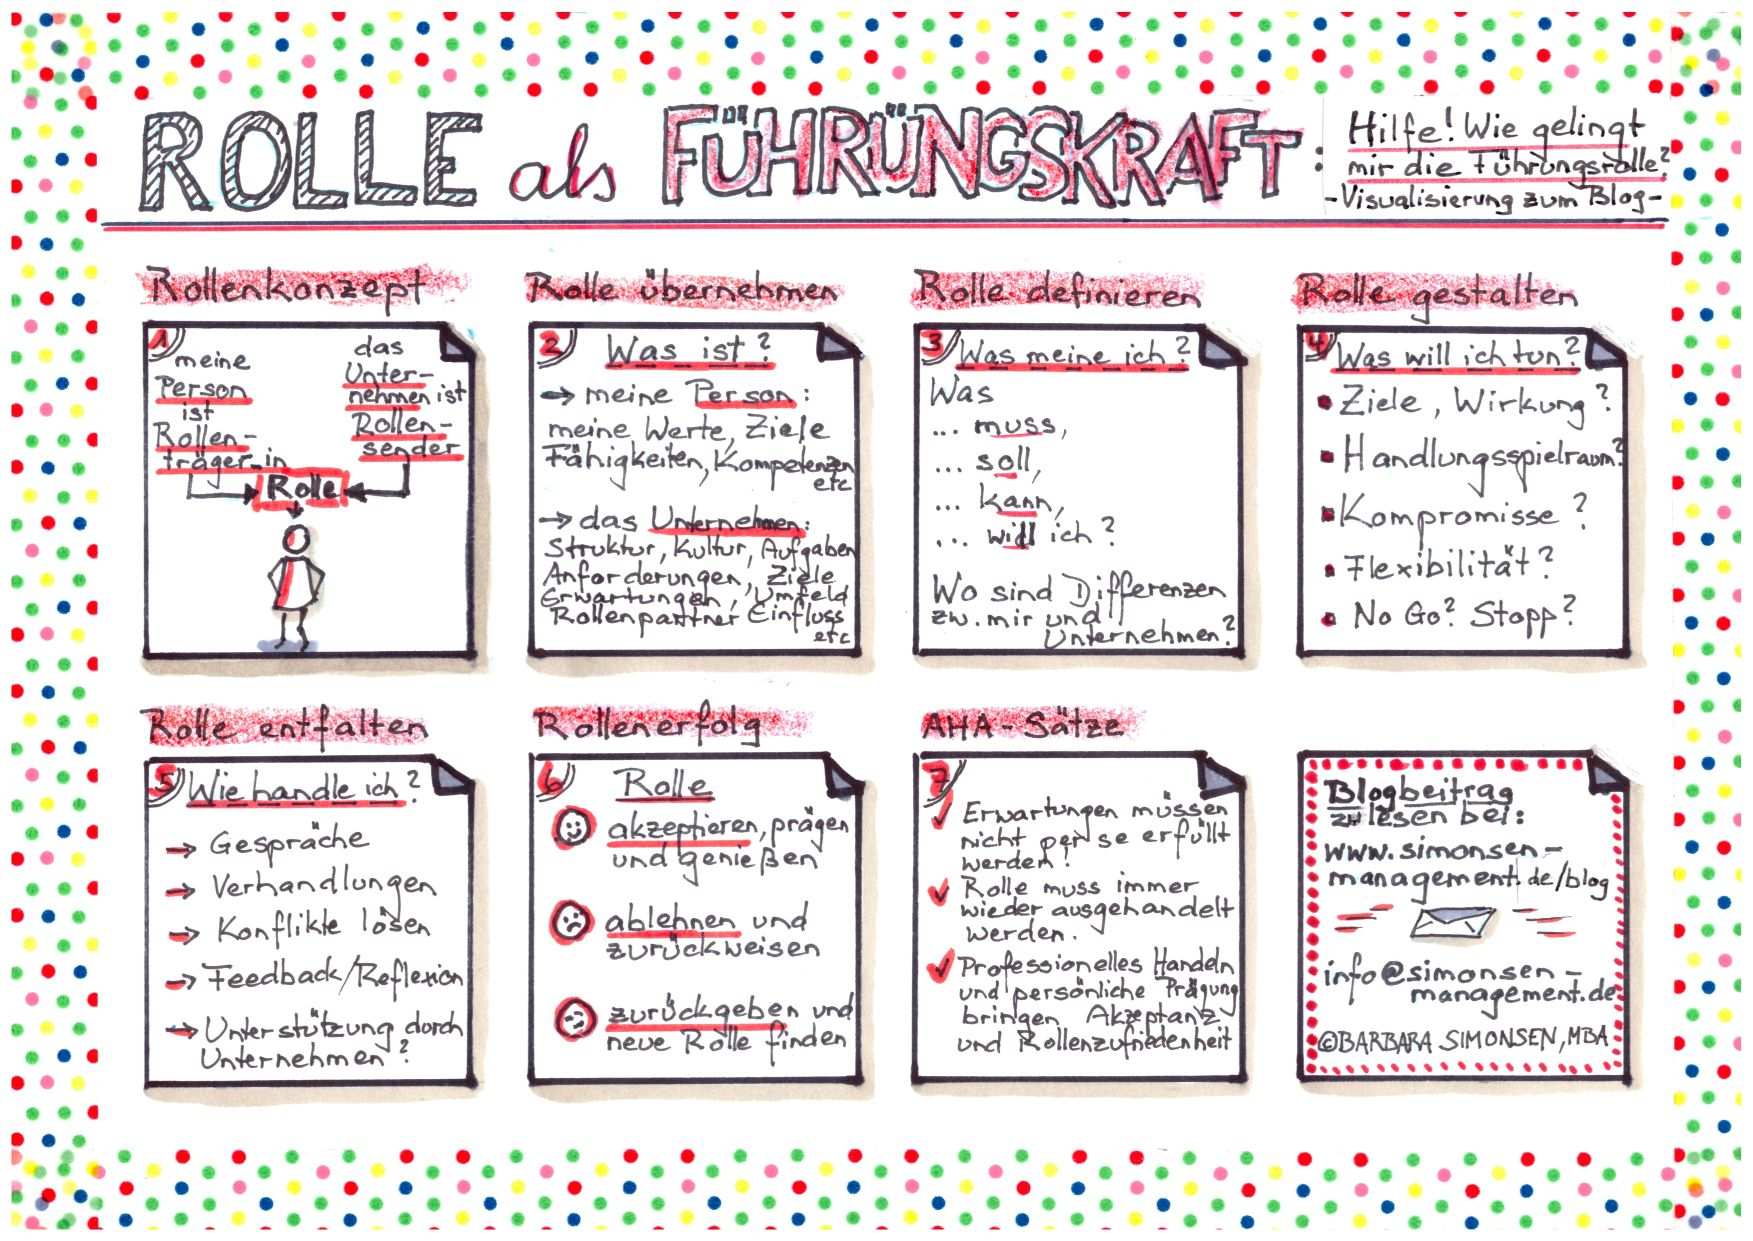 ROLLE als FÜHRÜNGSKRAFT:
Hilfe! Wie gelingt
mir die Führungsrolle?
-Visualisierung zum Blog-
Rollenkonzept
1
meine
Person
ist
Rollen-
träger_in
das
Unter-
nehmen ist
Rollen-
sender
Rolle
Rolle übernehmen
2
Was ist?
→ meine Person:
meine Werte, Ziele
Fähigkeiten, Kompetenzen
etc
→ das Unternehmen:
Struktur, Kultur, Aufgaben
Anforderungen, Ziele
Erwartungen, Umfeld
Rollenpartner Einfluss
etc
Rolle definieren
3
Was meine ich?
Was
... muss,
... soll,
... kann,
... will ich?
Wo sind Differenzen
zw. mir und
Unternehmen?
Rolle gestalten
4
Was will ich tun?
Ziele, Wirkung?
Handlungsspielraum?
Kompromisse?
Flexibilität?
No Go? Stopp?
Rolle entfalten
5
Wie handle ich?
→ Gespräche
→ Verhandlungen
→ Konflikte lösen
→ Feedback/Reflexion
→ Unterstützung durch
Unternehmen?
Rollenerfolg
6
Rolle
akzeptieren, prägen
und genießen
ablehnen und
zurückweisen
zurückgeben und
neue Rolle finden
AHA-Sätze
7
Erwartungen müssen
nicht per se erfüllt
werden!
Rolle muss immer
wieder ausgehandelt
werden.
Professionelles Handeln
und persönliche Prägung
bringen Akzeptanz
und Rollenzufriedenheit
Blogbeitrag
zu lesen bei:
www.simonsen-
management.de/blog
info@simonsen-
management.de
©BARBARA SIMONSEN, MBA